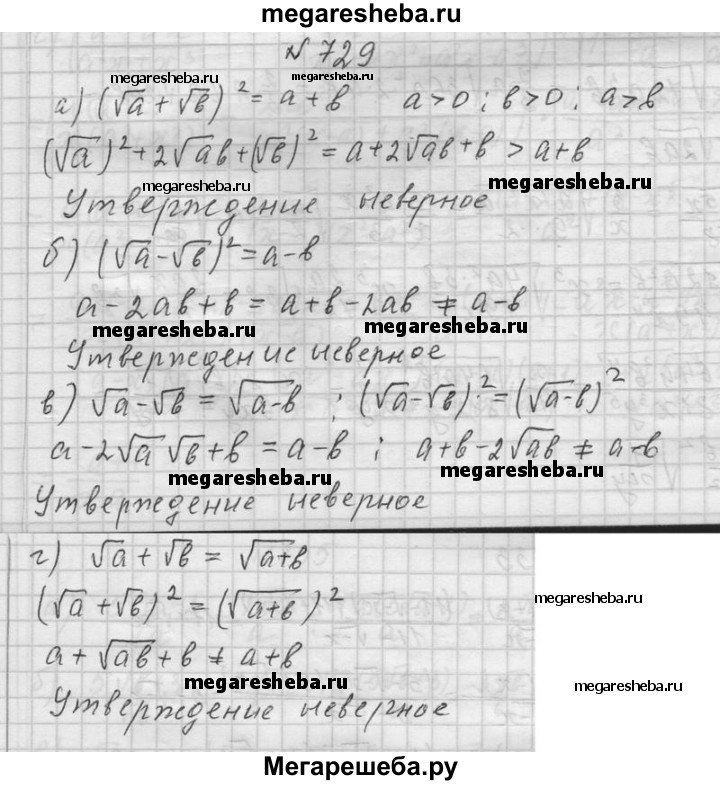 megaresheba.ru
№ 729
megaresheba.ru megaresheba.ru
а) (√a + √b)² = a + b a > 0 ; b > 0 ; a > b
(√a)² + 2√ab + (√b)² = a + 2√ab + b > a + b
megaresheba.ru megaresheba.ru
Утверждение неверное
б) (√a - √b)² = a - b
a - 2ab + b = a + b - 2ab ≠ a - b
megaresheba.ru megaresheba.ru
Утверждение неверное
в) √a - √b = √a-b ; (√a - √b)² = (√a-b)²
a - 2√a √b + b = a - b ; a + b - 2√ab ≠ a - b
megaresheba.ru megaresheba.ru
Утверждение неверное
г) √a + √b = √a+b
(√a + √b)² = (√a+b)²
megaresheba.ru
a + √ab + b ≠ a + b
megaresheba.ru megaresheba.ru
Утверждение неверное
Мегарешеба.ру